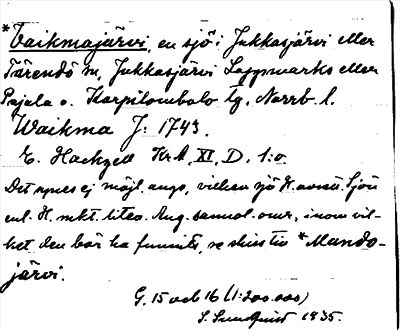 *Vaikmajärvi, en sjö i Jukkasjärvi eller
Tärendö sn, Jukkasjärvi Lappmarks eller
Pajala o. Korpilombolo tg, Norrb. l.
Waikma J: 1743.
E. Hackzell KrA, XI, D, 1.a.
Det synes ej möjl. ange, vilken sjö H. avser. Sjön
enl. H. mkt. liten. Ang. samml. omr., inom vil-
ket den bör ha funnits, se skiss till *Mando-
järvi.
G. 15 och 16 (1:200.000)
S. Sundqvist 1935.